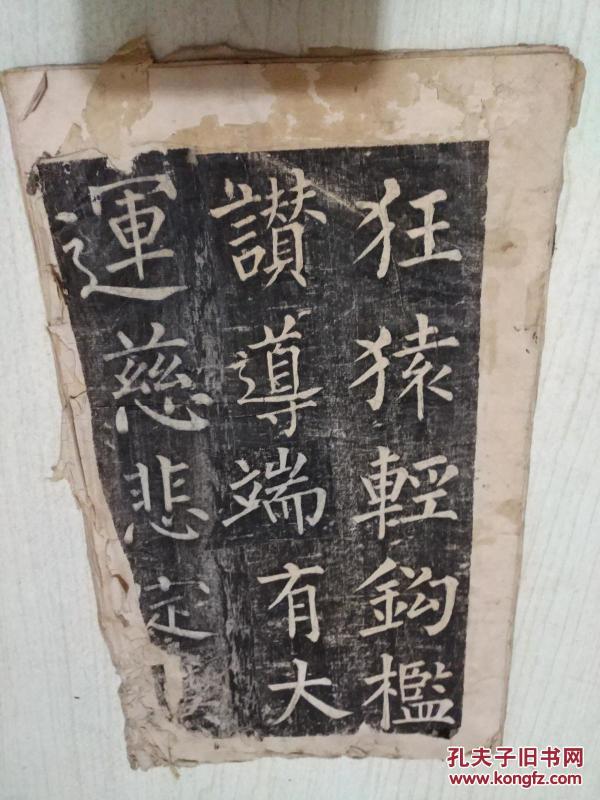 狂猿輕鈎檻
讃導端有大
運慈悲定
孔夫子旧书网
www.kongfz.com